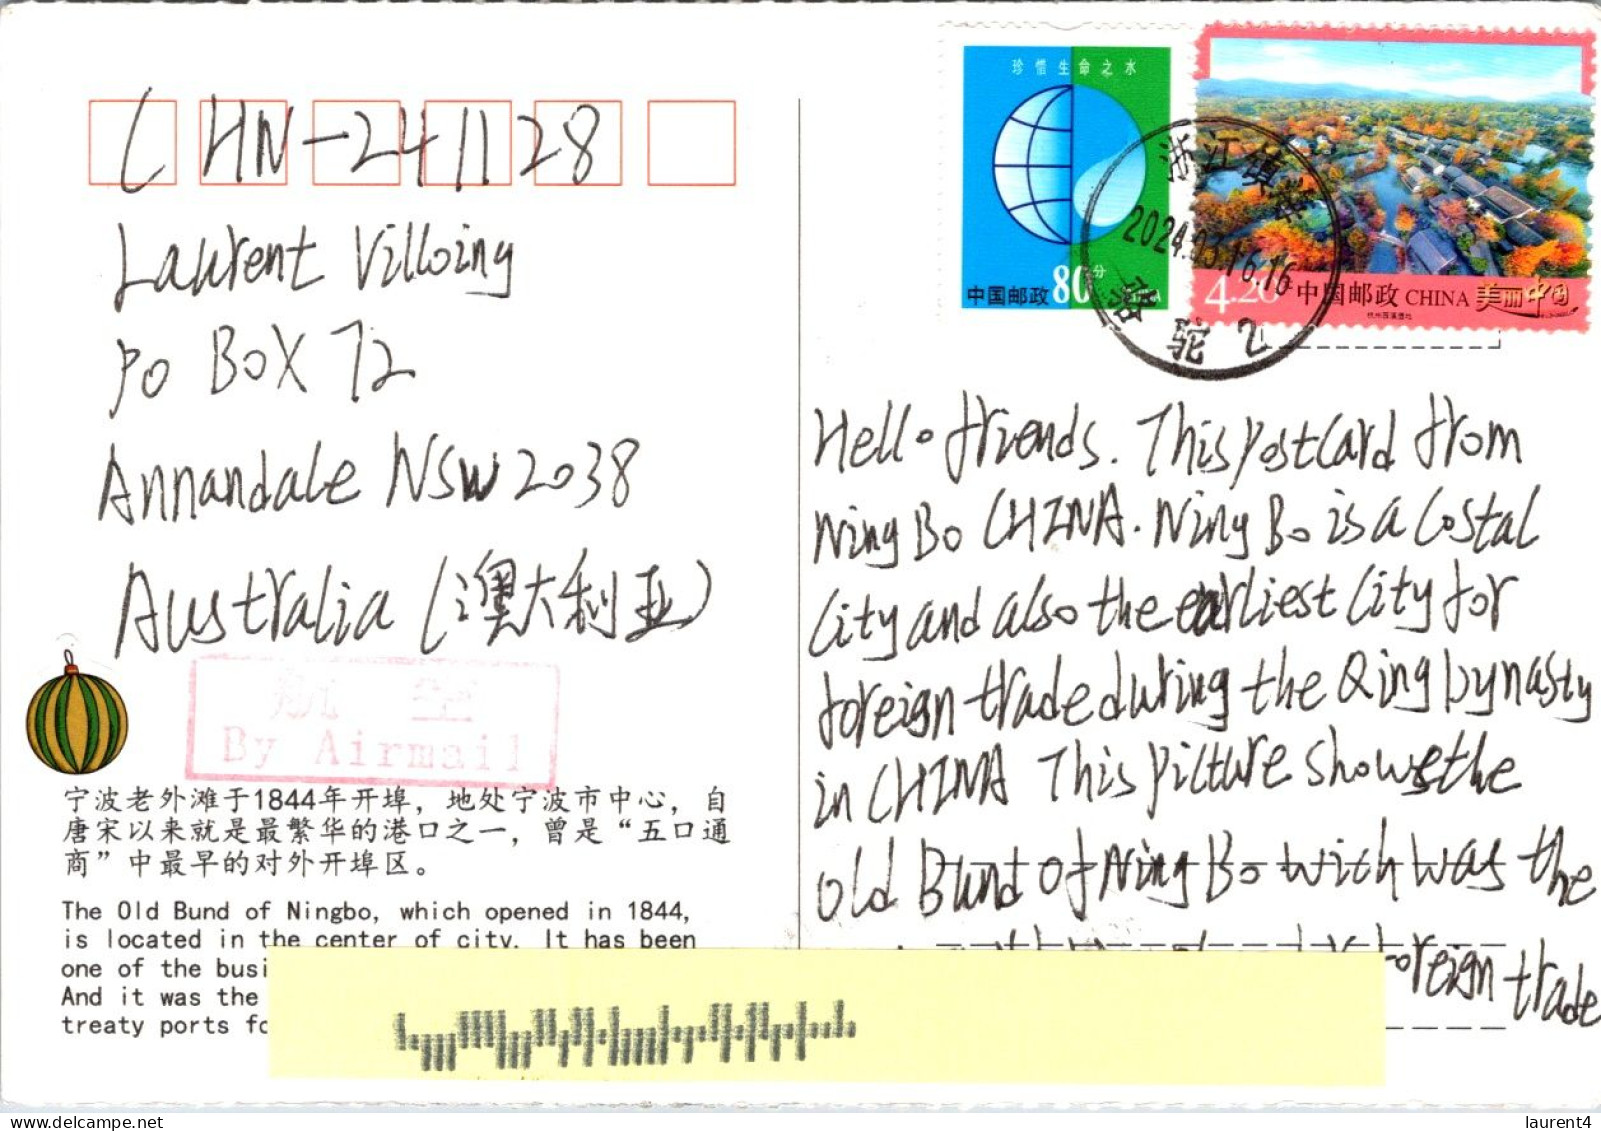 CHN-241128
Laurent Villoing
PO BOX 72
Annandale NSW 2038
Australia (澳大利亚)
航空
By Airmail
宁波老外滩于1844年开埠，地处宁波市中心，自
唐宋以来就是最繁华的港口之一，曾是“五口通
商”中最早的对外开埠区。
The Old Bund of Ningbo, which opened in 1844,
is located in the center of city. It has been
one of the busi
And it was the
treaty ports fo
珍惜生命之水
中国邮政 80分
4.20 中国邮政 CHINA 美丽中国
浙江镇海
2024.03.16.16
骆驼 2
Hello friends. This postcard from
Ning Bo CHINA. Ning Bo is a Costal
City and also the earliest City for
foreign trade during the Qing Dynasty
in CHINA This picture shows the
old Bund of Ning Bo with was the
foreign trade
laurent4